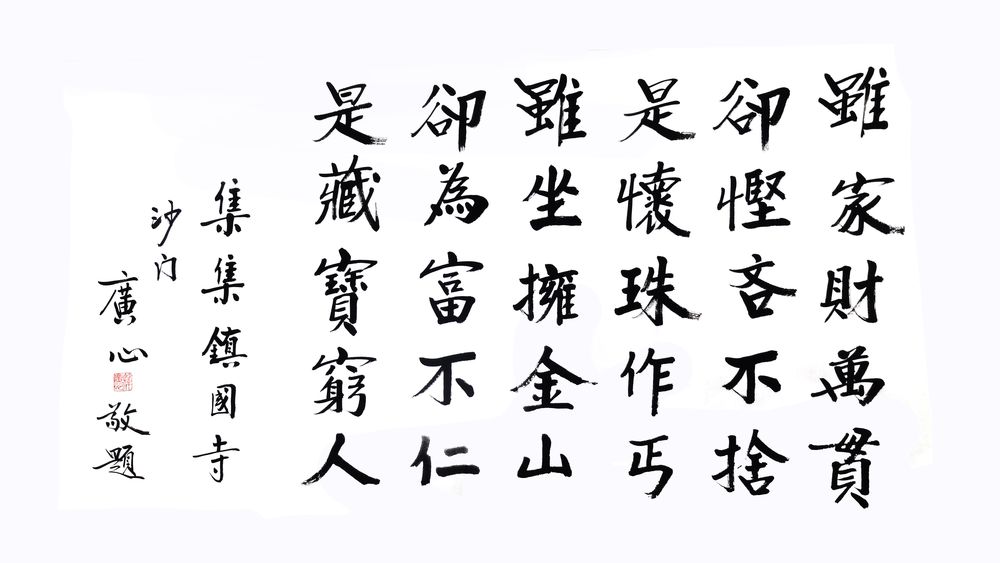 雖家財萬貫
卻慳吝不捨
是懷珠作丐
雖坐擁金山
卻為富不仁
是藏寶窮人
集集鎮國寺
沙门
廣心敬題